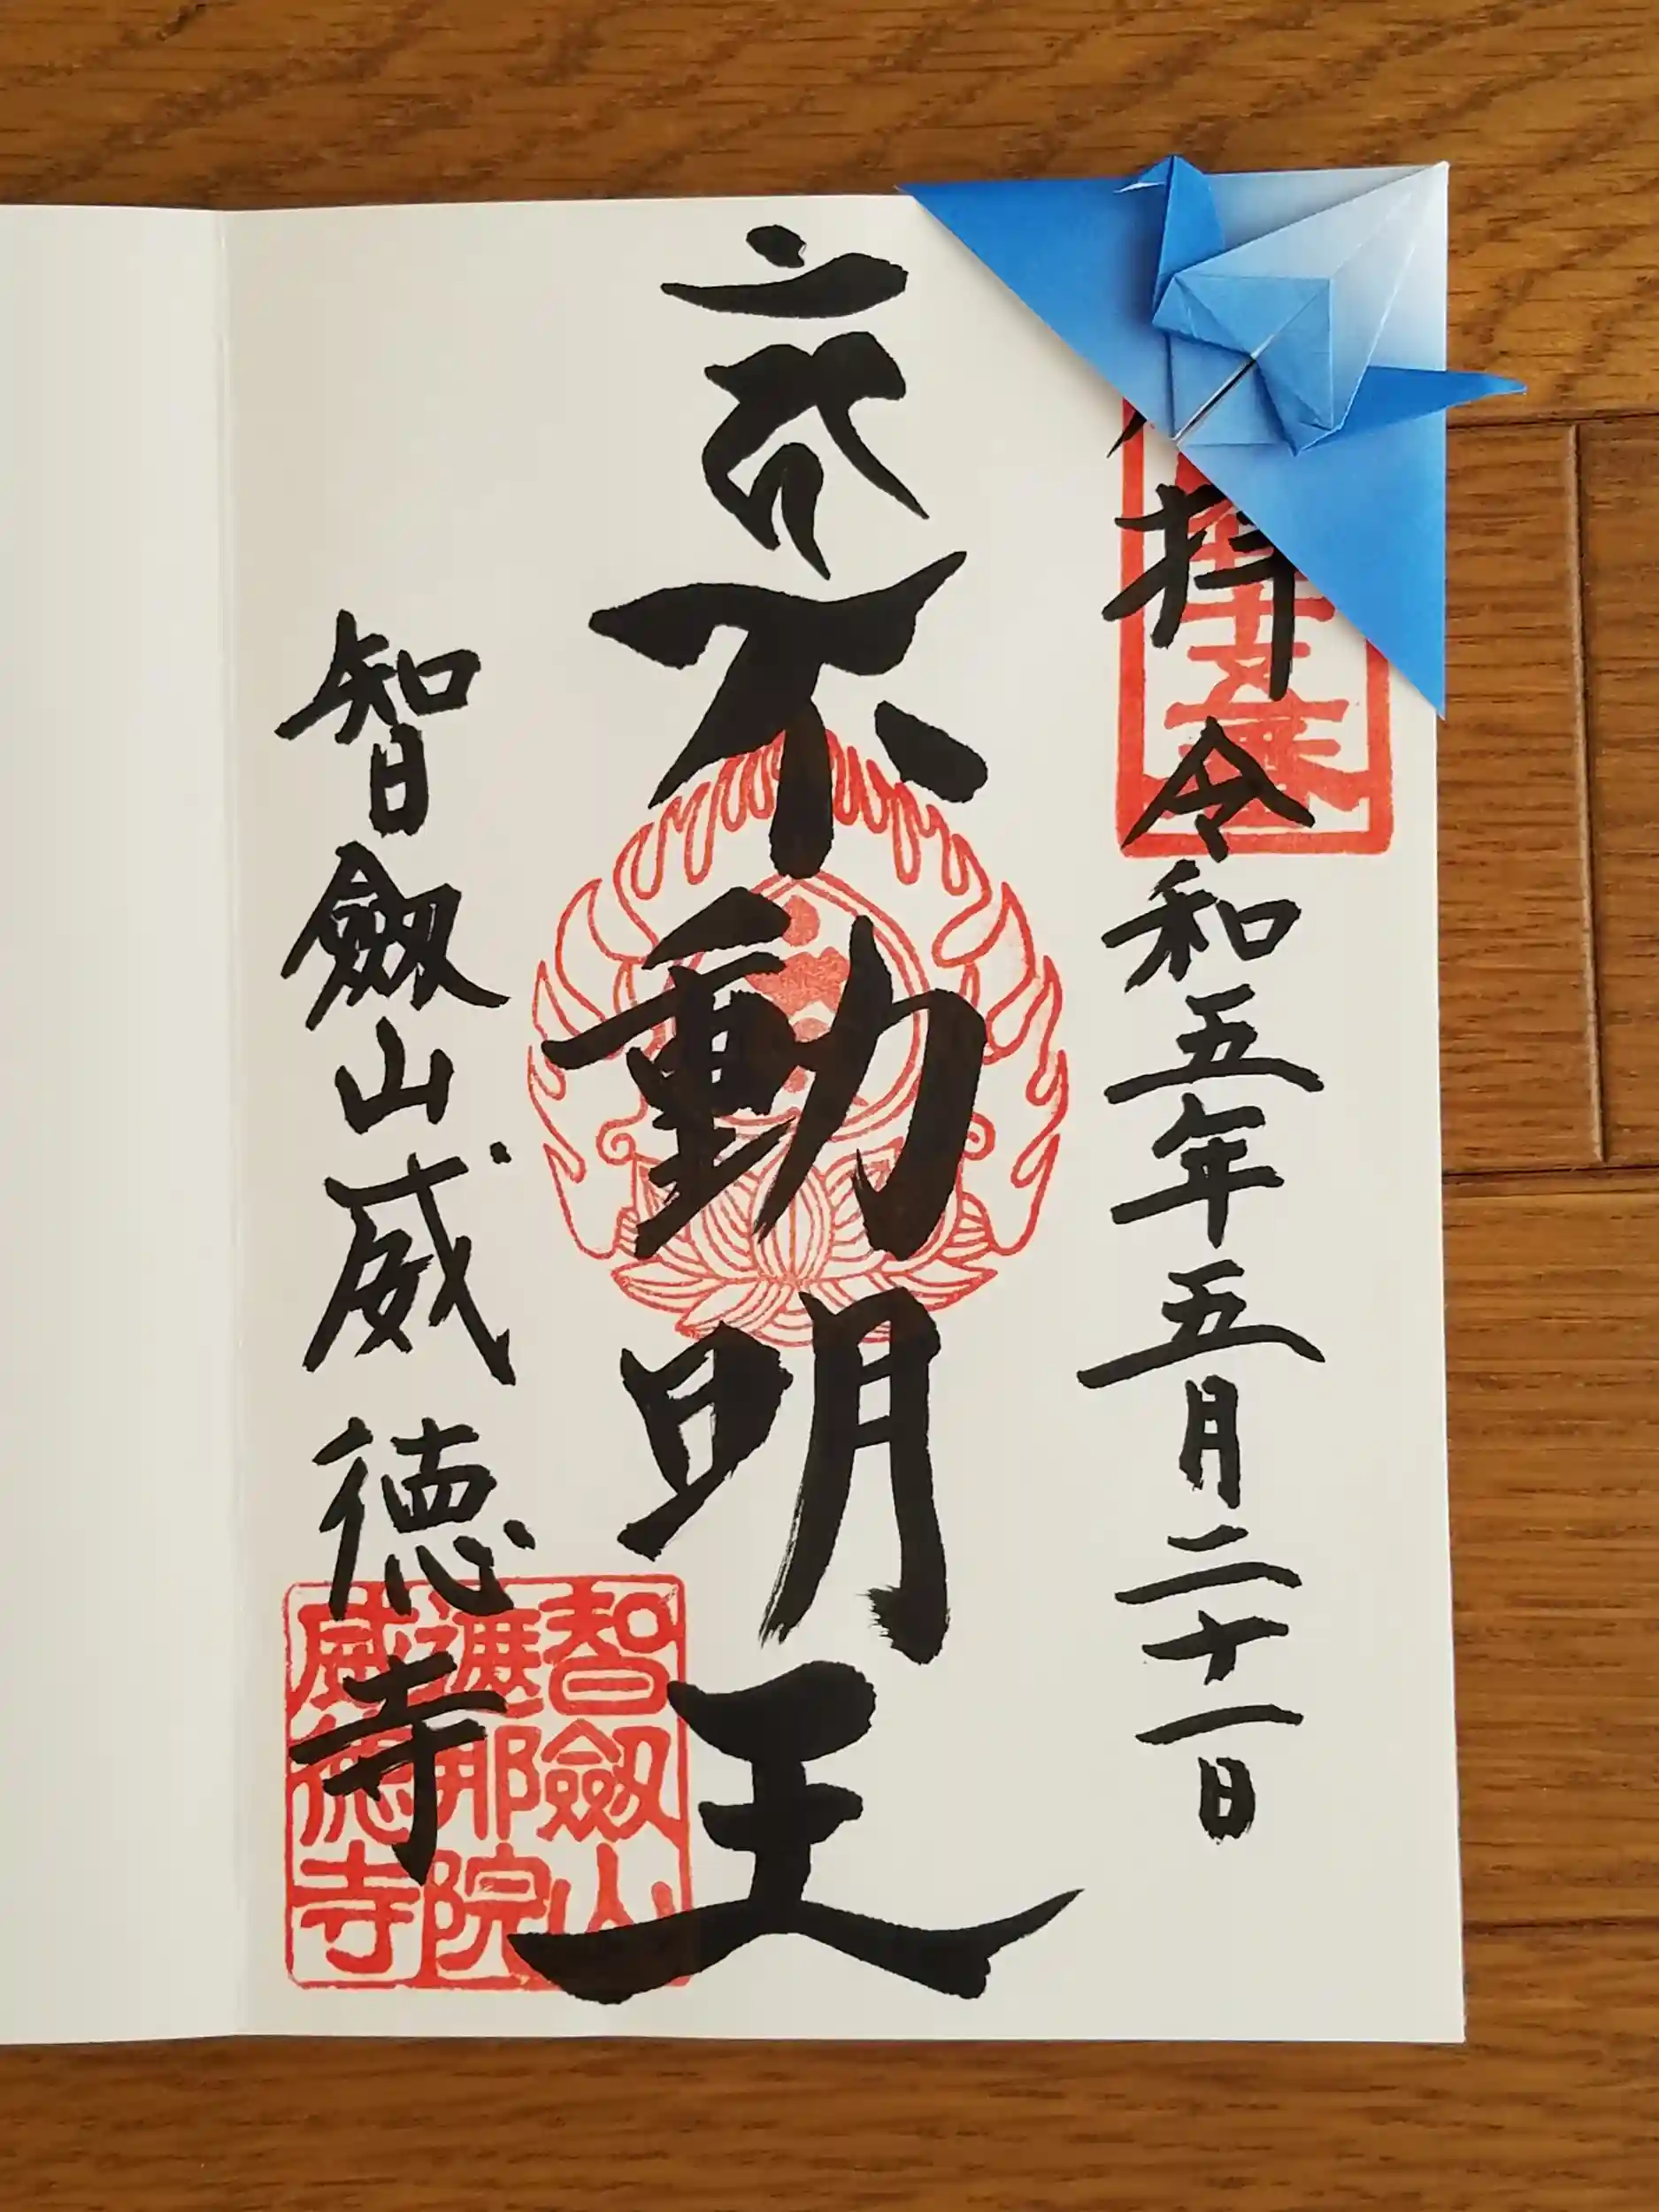 拝 令和五年五月二十一日
不動明王
智劔山威徳寺
智劔山
遮那院
威徳寺